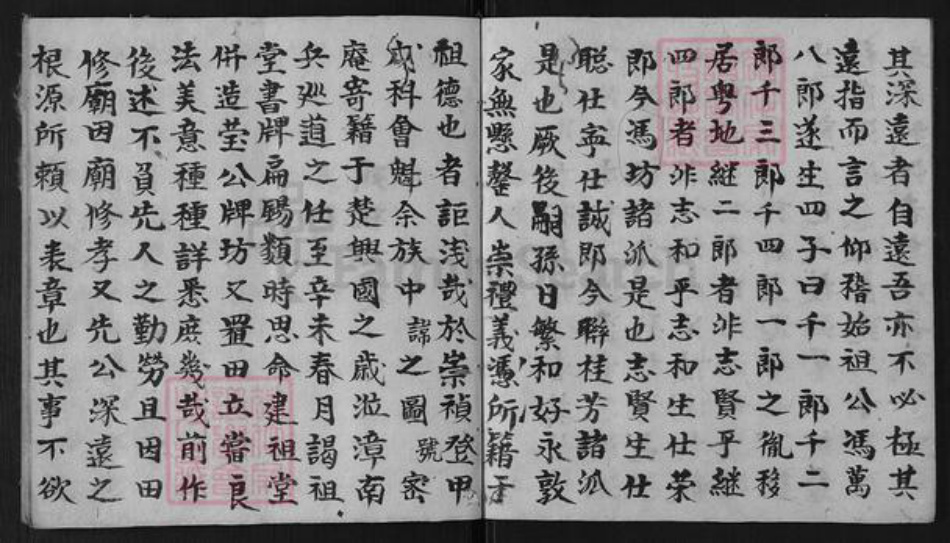 其深遠者自遠吾亦不必極其
遠指而言之仰稽始祖公馮萬
八郎遂生四子曰千一郎千二
郎千三郎千四郎一郎之胤移
居粤地継二郎者非志賢乎継
四郎者非志和乎志和生仕荣
即今馮坊諸派是也志賢生仕
聪仕寧仕誠郎今聯桂芳諸派
是也厥後嗣孫日繁和好永敦
家無懸罄人崇禮義憑所籍于
祖德也者詎浅哉於崇禎登甲
戌科會魁余族中諱之圖號密
庵寄籍于楚興國之歲涖漳南
兵廵道之任至辛未春月謁祖
堂書牌扁賜類時思命建祖堂
併造塋公牌坊又置田立嘗良
法美意種種詳悉庶幾哉前作
後述不負先人之勤勞且因田
修廟因廟修孝又先公深遠之
根源所頼以表章也其事不欲
FamilySearch